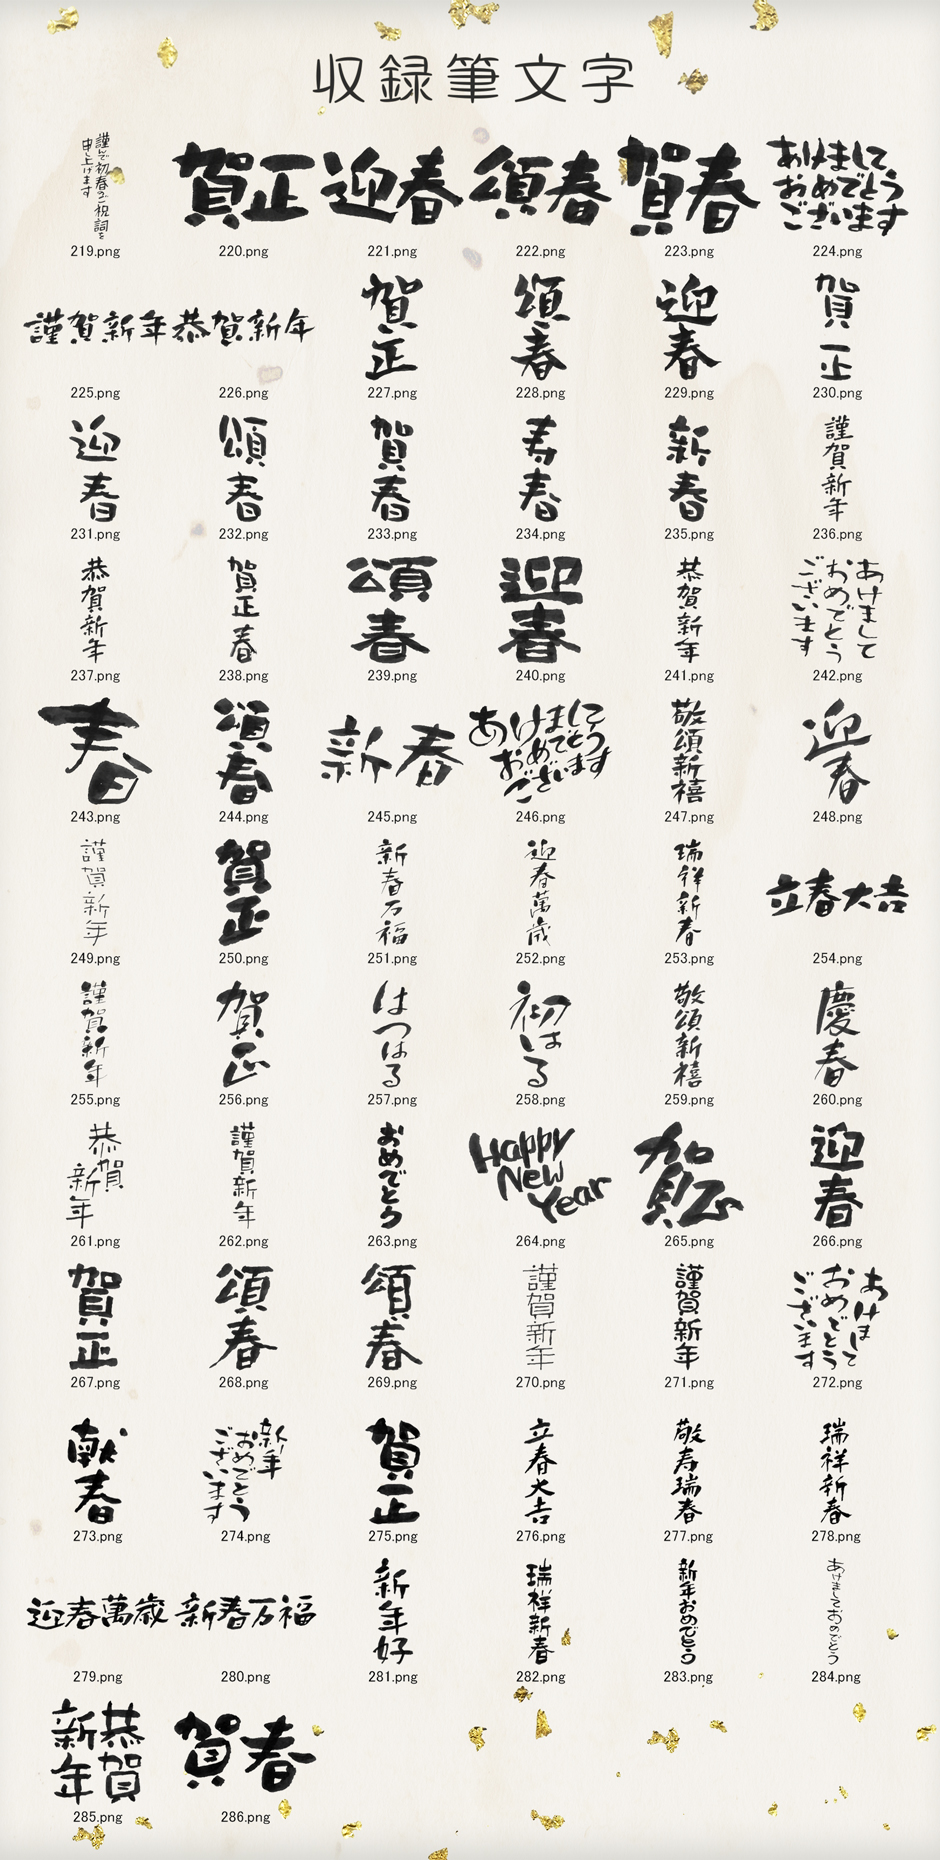 収録筆文字
謹んで初春のご祝詞を
申し上げます
219.png
賀正
220.png
迎春
221.png
頌春
222.png
賀春
223.png
あけまして
おめでとう
ございます
224.png
謹賀新年
225.png
恭賀新年
226.png
賀正
227.png
頌春
228.png
迎春
229.png
賀正
230.png
迎春
231.png
頌春
232.png
賀春
233.png
寿春
234.png
新春
235.png
謹賀新年
236.png
恭賀新年
237.png
賀正春
238.png
頌春
239.png
迎春
240.png
恭賀新年
241.png
あけまして
おめでとう
ございます
242.png
春
243.png
頌春
244.png
新春
245.png
あけまして
おめでとう
ございます
246.png
敬頌新禧
247.png
迎春
248.png
謹賀新年
249.png
賀正
250.png
新春万福
251.png
迎春萬歳
252.png
瑞祥新春
253.png
立春大吉
254.png
謹賀新年
255.png
賀正
256.png
はつはる
257.png
初はる
258.png
敬頌新禧
259.png
慶春
260.png
恭賀
新年
261.png
謹賀新年
262.png
おめでとう
263.png
Happy
New
Year
264.png
賀正
265.png
迎春
266.png
賀正
267.png
頌春
268.png
頌春
269.png
謹賀新年
270.png
謹賀新年
271.png
あけまして
おめでとう
ございます
272.png
献春
273.png
新年
おめでとう
ございます
274.png
賀正
275.png
立春大吉
276.png
敬寿瑞春
277.png
瑞祥新春
278.png
迎春萬歳
279.png
新春万福
280.png
新年好
281.png
瑞祥新春
282.png
新年おめでとう
283.png
あけましておめでとう
284.png
恭賀
新年
285.png
賀春
286.png